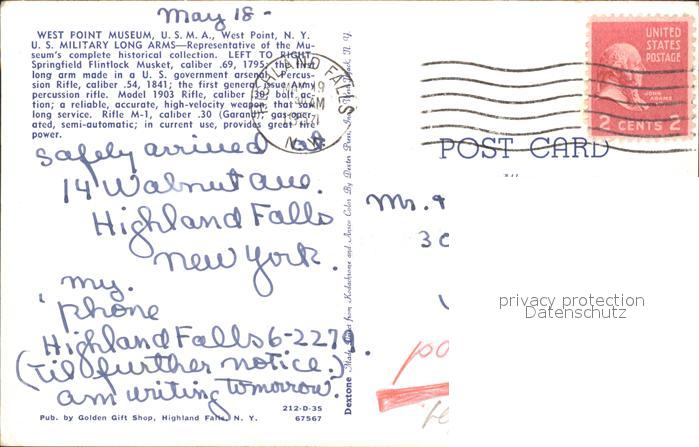 May 18 -
WEST POINT MUSEUM, U. S. M. A., West Point, N. Y.
U. S. MILITARY LONG ARMS—Representative of the Mu-
seum's complete historical collection. LEFT TO RIGHT:
Springfield Flintlock Musket, caliber .69, 1795; the first
long arm made in a U. S. government arsenal. Percus-
sion Rifle, caliber .54, 1841; the first general issue Army
percussion rifle. Model 1903 Rifle, caliber .30; bolt ac-
tion; a reliable, accurate, high-velocity weapon, that saw
long service. Rifle M-1, caliber .30 (Garand); gas-oper-
ated, semi-automatic; in current use, provides great fire
power.
safely arrived at
14 Walnut Ave.
Highland Falls
New York.
my.
phone
Highland Falls 6-2279.
(til further notice.)
am writing tomorrow.
Pub. by Golden Gift Shop, Highland Falls, N. Y.
212-D-35
67567
Dextone Made Direct from Kodachrome and Ansco Color By Dexter Press, West Nyack, N. Y.
HIGHLAND FALLS
AM
N.Y.
UNITED
STATES
POSTAGE
JOHN
ADAMS
2 CENTS 2
POST CARD
Mr.
3
po
privacy protection
Datenschutz